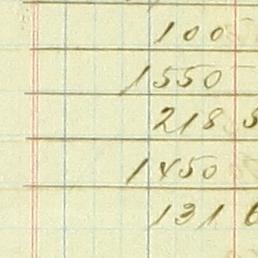 100
1550
218
1450
131 6